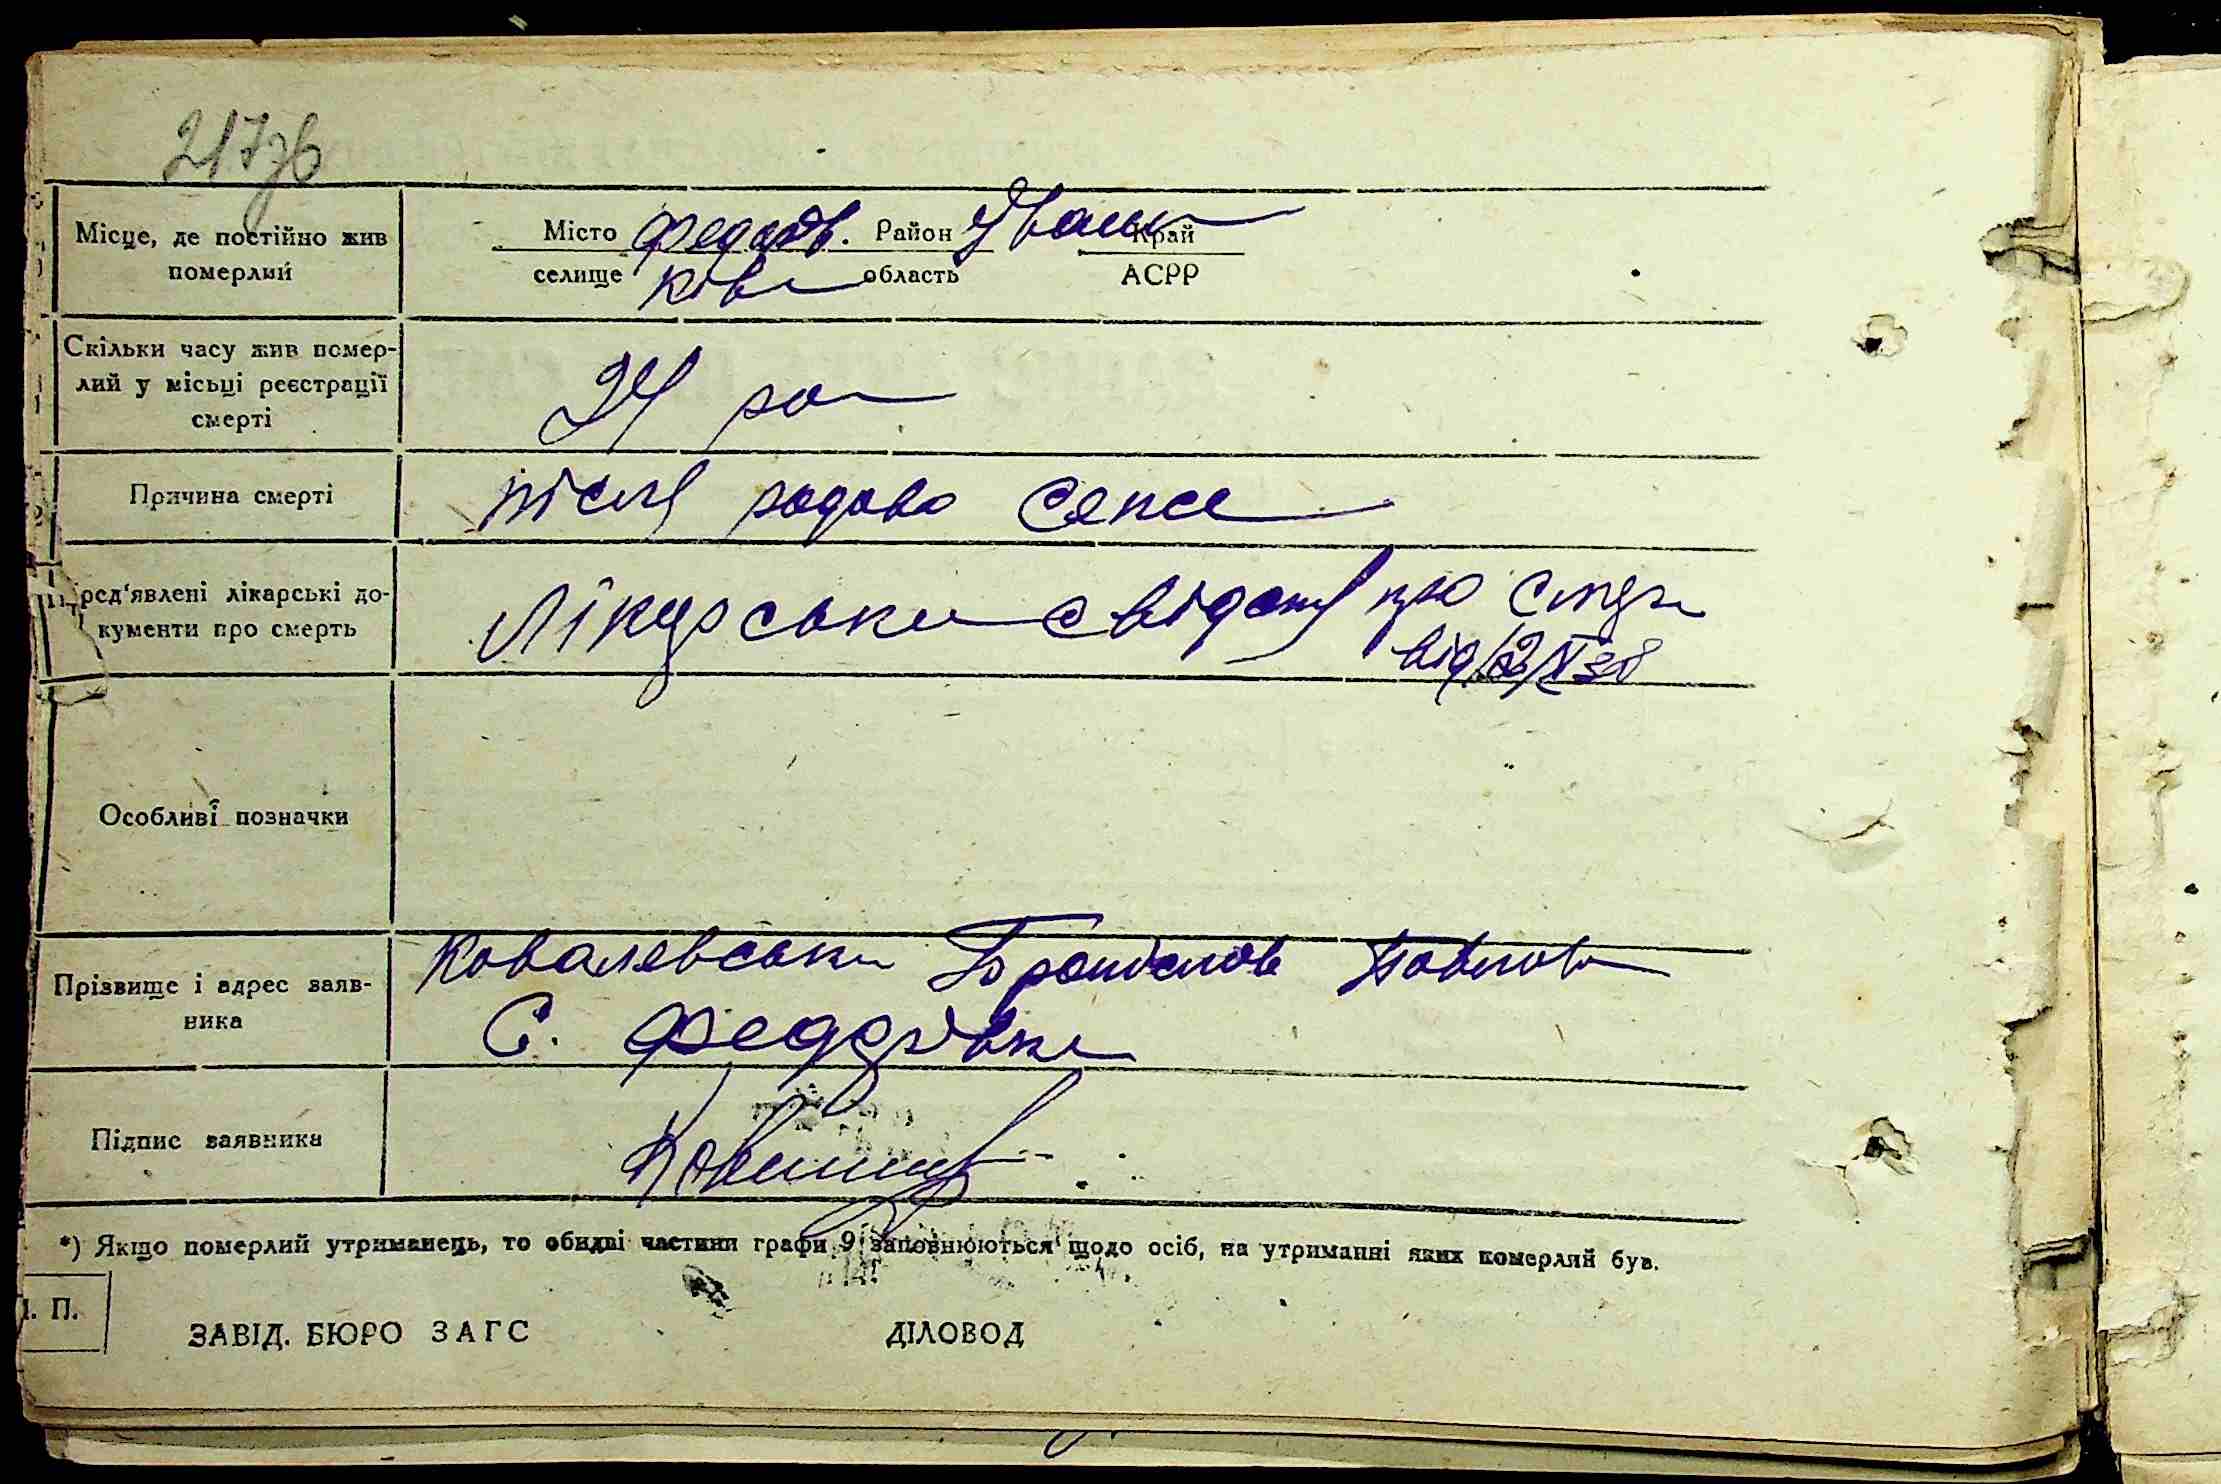 217зв
Місце, де постійно жив
померлий
Місто Федор. Район Іванк Край
селище ківк область АСРР
Скільки часу жив помер-
лий у місьці реєстрації
смерті
24 ро
Причина смерті
після родово сепсе
Пред'явлені лікарські до-
кументи про смерть
Лікарське свідотв про смер
від 12/V 38
Особливі позначки
Прізвище і адрес заяв-
ника
Ковалевськи Броніслов Павлов
С. Федорівка
Підпис заявника
*) Якщо померлий утриманець, то обидві частини графи 9 заповнюються щодо осіб, на утриманні яких померлий був.
М. П.
ЗАВІД. БЮРО ЗАГС ДІЛОВОД